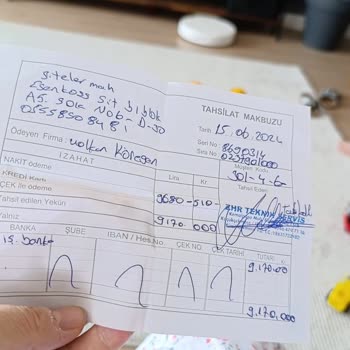 siteler mah
Bankacı Sit J blok
A5. sok No6-D-30
0555 850 84 81
Ödeyen Firma: volkan
TAHSİLAT MAKBUZU
Tarih 15.06.2024
Seri No
Sıra No
Müşteri Kodu
301-4-6
Tahsil Eden
İZAHAT
Lira Kr.
NAKİT ödeme
KREDİ Kartı
ÇEK ile ödeme
Tahsil edilen Yekün
Yalnız
9680-510-
9.170.000
TEKNİK SERVİS
BANKA ŞUBE IBAN / Hes.No ÇEK NO. ÇEK TARİHİ TUTARI
iş banka
9.170.00
9.170.000